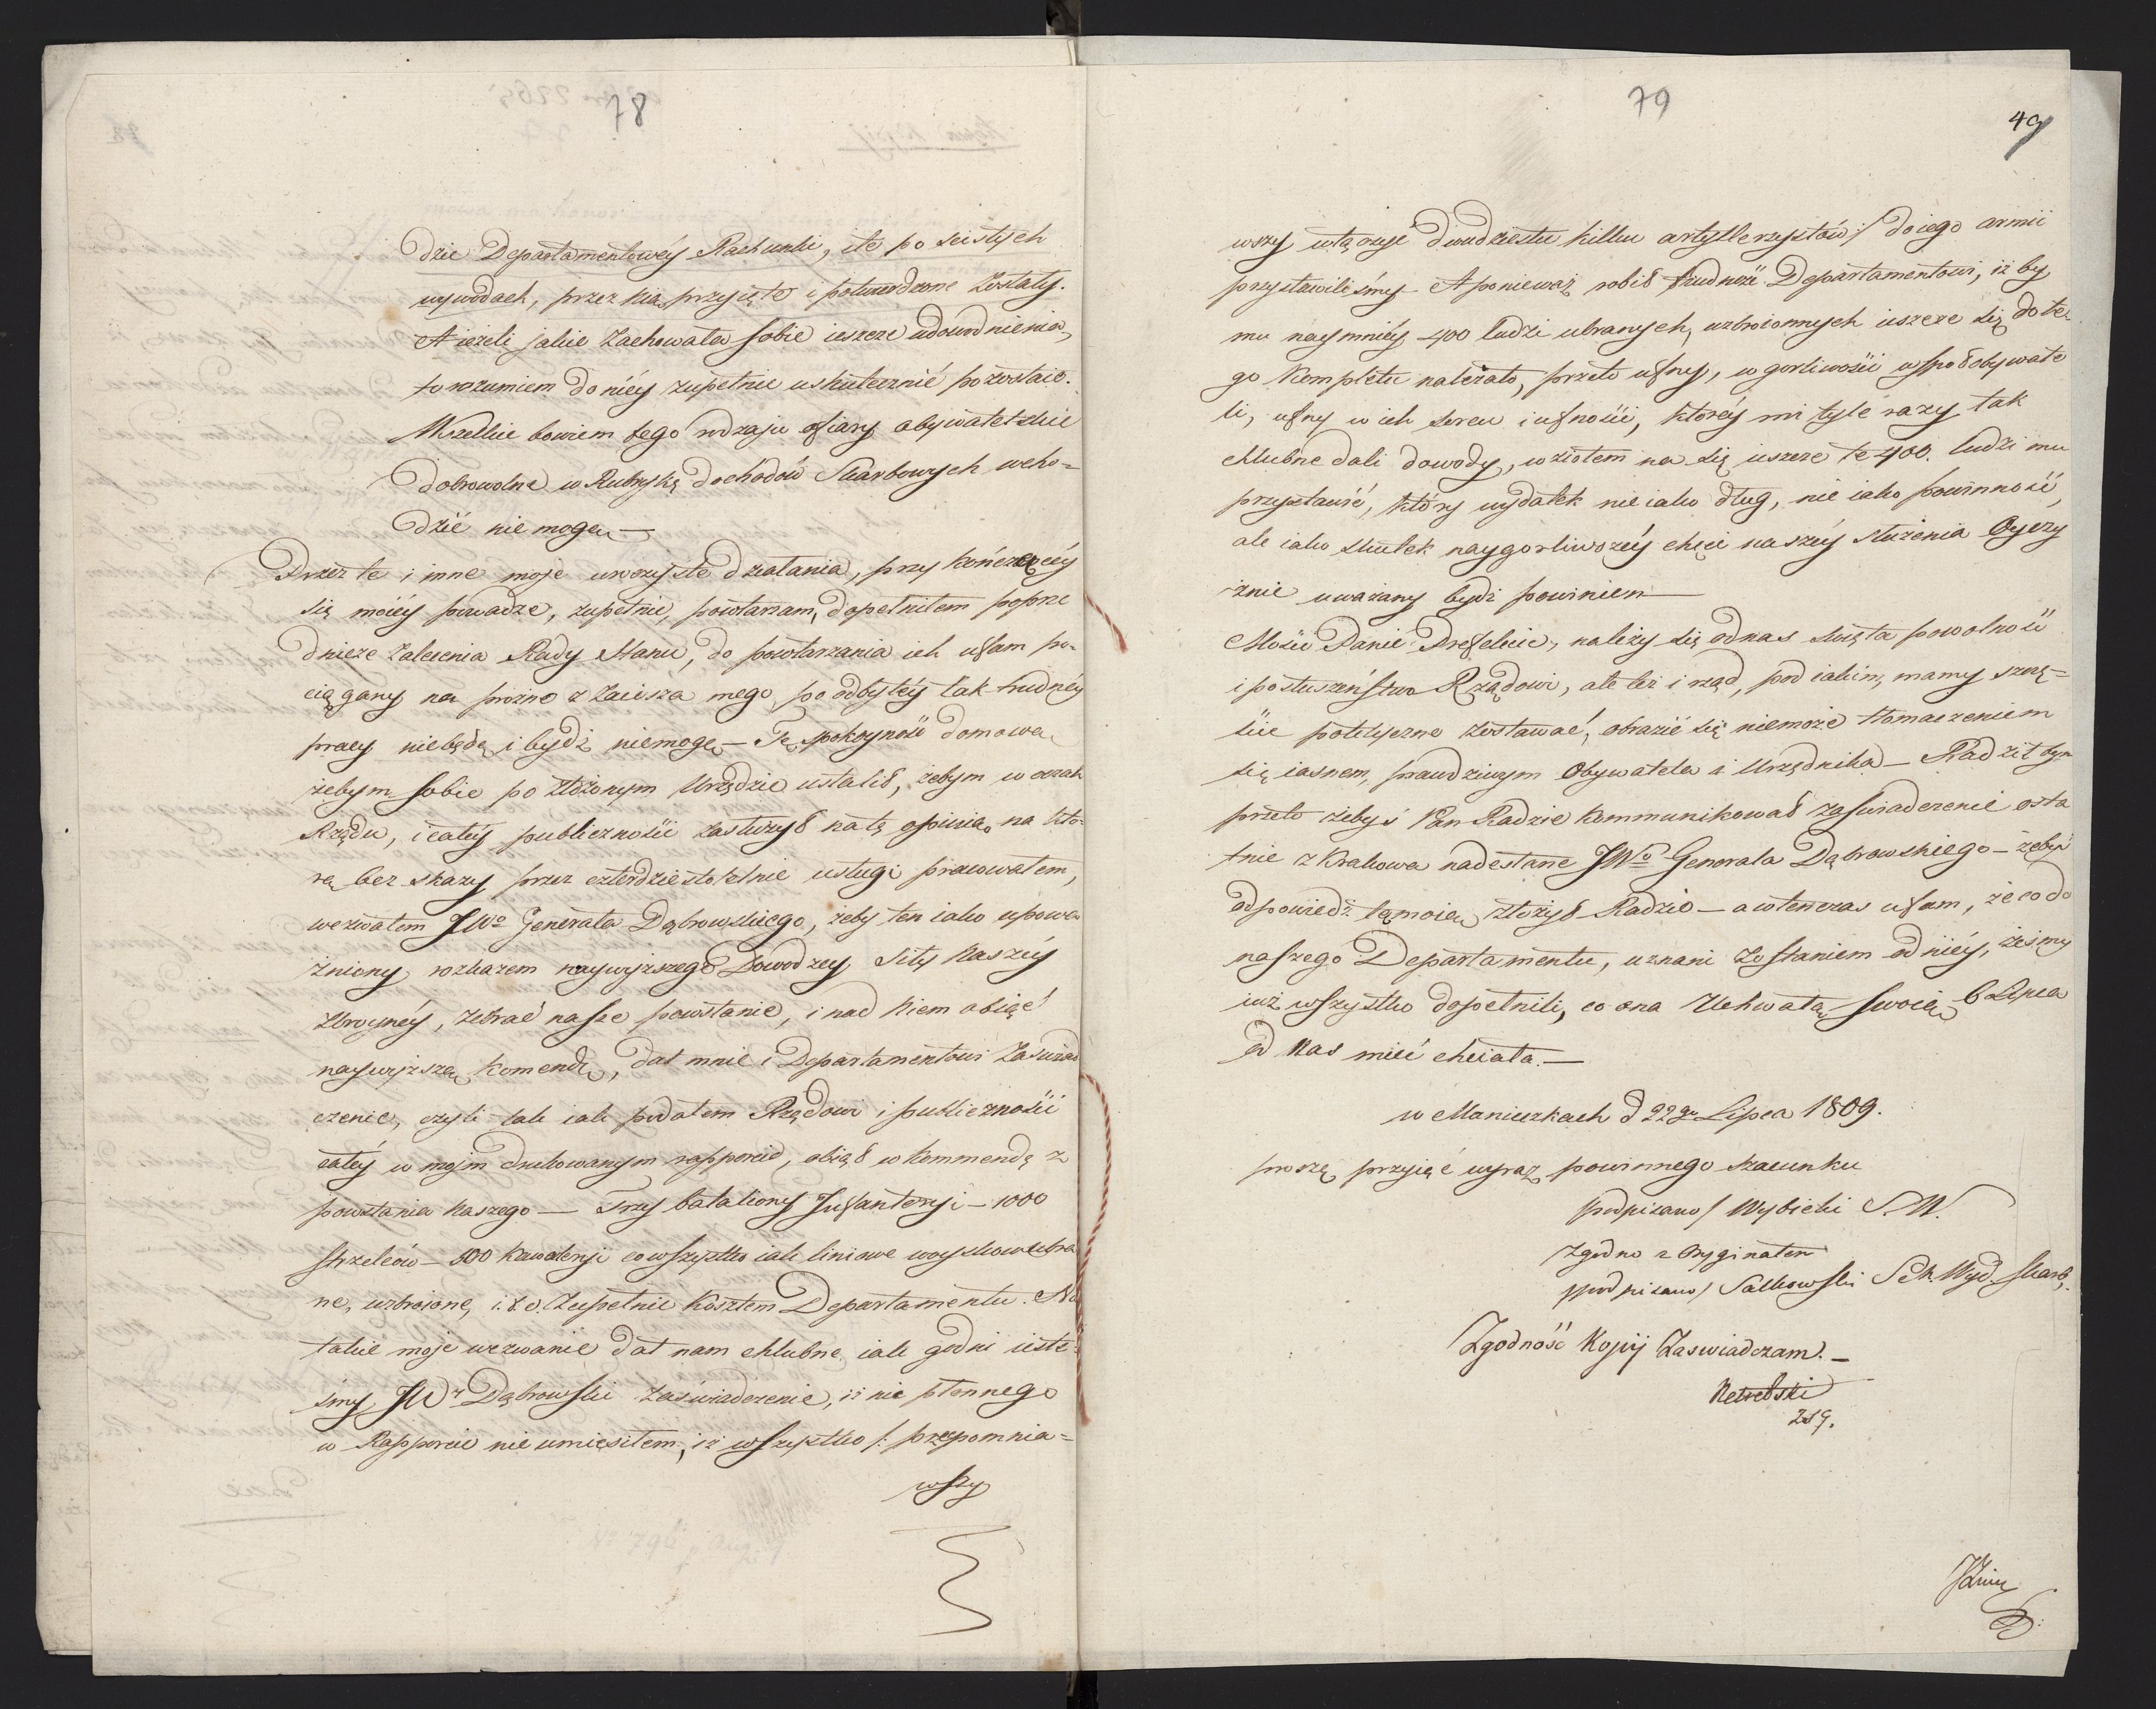 78
dzie Departamentowéy Rachunki, ile po scisłych
wywodach, przez nią przyięte i potwierdzone zostały.
A ieżeli jakie zachowała sobie ieszcze udowodnienia,
to rozumiem do niéy zupełnie uskutecznić pozostaie.
Wszelkie bowiem tego rodzaju ofiary obywatelskie
dobrowolne w Rubrykę dochodów Skarbowych wcho=
dzić nie mogą —
Przez te i inne moje uroczyste działania, przy kończącéy
się moiéy władze, zupełnie, powtarzam, dopełniłem poprze
dnicze zalecenia Rady Stanu, do powtarzania ich ufam po-
ciągany na prózno z zacisza mego, po odbytéy tak trudnéy
pracy nie będę i bydź niemogę — Tę spokoyność domową
żebym sobie po złożonym Urzędzie ustalił, żebym w oczach
Rządu, i całéy publiczności zasłużył na tę opinią, na któ-
rą bez skazy przez czterdziestoletnie usługi pracowałem,
wezwałem JWo Generała Dąbrowskiego, żeby ten iako upowa
żniony rozkazem naywyższego Dowodzcy siły naszéy
zbroynéy, zebrać nasze powstanie, i nad niem obiąć
naywyższą komendę, dał mnie i Departamentowi zaświad
czenie, czyli tak iak podałem Rządowi i publiczności
całéy w moim drukowanym rapporcie, obiął w kommendę z
powstania naszego — Trzy bataliony Infanteryi — 1000
strzelców — 500 kawaleryi co wszystko iak liniowe woysko ubra
ne, uzbroione, i.t.d. zupełnie kosztem Departamentu. Na
takie moje wezwanie dał nam chlubne iak godni ieste-
śmy JWr Dąbrowski zaświadczenie, iż nic płonnego
w Rapporcie nie umieściłem, iż wszystko /: przepomnia=
wszy
79
49
wszy wtączyć dwudziestu kilku artyllerzystów :/ do iego armii
przystawiliśmy — A ponieważ robił trudność Departamentowi, iż by
mu naymniéy 400 ludzi ubranych, uzbroionnych ieszcze się do te
go kompletu należało, przeto ufny, w gorliwości współobywate
li, ufny w ich sercu i ufności, któréy mi tyle razy tak
chlubne dali dowody, wziołem na się ieszcze te 400. ludzi mu
przystawić, który wydatek nie iako dług, nie iako powinność,
ale iako skutek naygorliwszéy chęci naszéy służenia Oyczy
znie uważany bydź powinien —
Mości Panie Prefekcie, należy się od nas święta powolność
i posłuszeństwo Rządowi, ale też i rząd, pod iakim, mamy szczę=
ście polityczne zostawać, obrazić się niemoże tłomaczeniem
się iasnem, prawdziwym Obywatela i Urzędnika — Radził bym
przeto żebyś Pan Radzie kommunikował zaświadczenie osta
tnie z Krakowa nadesłane JWo Generała Dąbrowskiego — żebyś
odpowiedź tą moią złożył Radzie — a wtenczas ufam, że co do
naszego Departamentu, uznani zostaniem od niéy, żeśmy
iuż wszystko dopełnili, co ona Uchwałą swoią 6 Lipca
od nas mieć chciała. —
w Manieczkach d 22go Lipca 1809.
proszę przyiąć wyraz powinnego szacunku
podpisano / Wybicki S.W.
Zgodno z Oryginałem
/podpisano/ Sałkowski Sek Wyd. skarb.
Zgodność Kopij Zaswiadczam. —
Netrebski